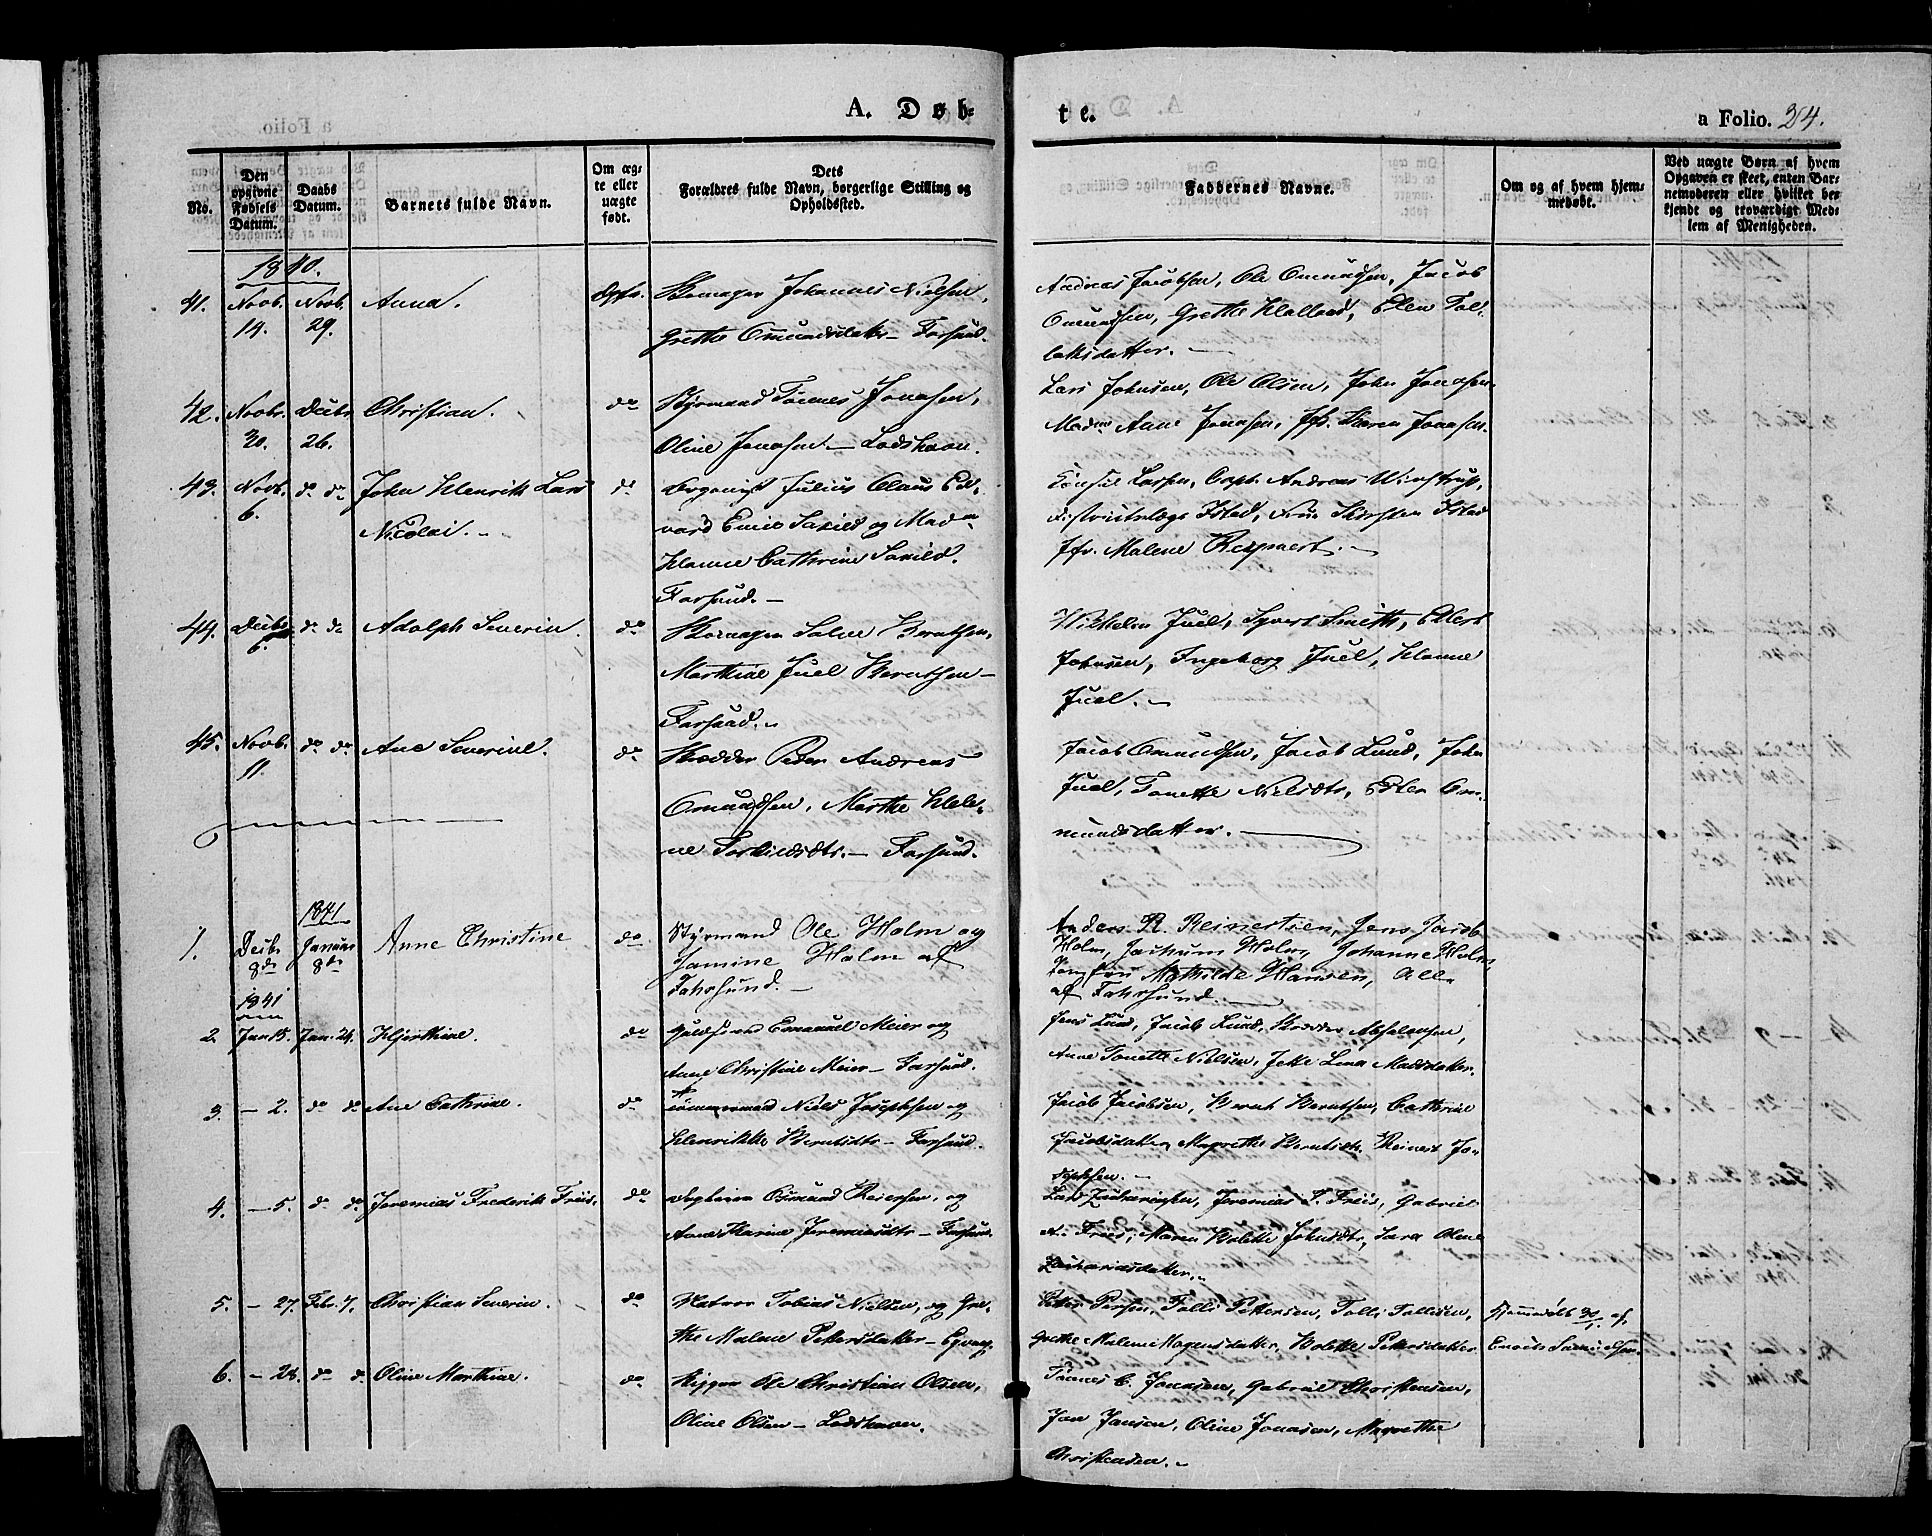 A. Døb-
te.
a Folio. 24.
No.
Den opgivne Fødsels Datum.
Daabs Datum.
Barnets fulde Navn.
Om ægte eller uægte født.
Dets Forældres fulde Navn, borgerlige Stilling og Opholdssted.
Faddernes Navne.
Om og af hvem hjemmedøbt.
Ved uægte Børn af hvem Opgaven er skeet, enten Barnemoderen eller hvilket bekjendt og troværdigt Medlem af Menigheden.
1840.
41. Novb. 14. Novb. 29. Anna. Ægte. Skomager Johannes Nielsen,
Grethe Omundsdatter – Farsund.
Andreas Jacobsen, Ole Omundsen, Jacob
Omundsen, Grethe Halland, Elen Tol-
laksdatter. –
42. Novbr. 30. Decbr. 26. Christian. do Styrmand Tønnes Jonasen,
Oline Jonasen – Lodshavn.
Lars Johnsen, Ole Olsen, John Jonasen
Madm Anne Jonasen, Jfr. Karen Jonasen.
43. Novb. 6. do do John Henrik Lars
Nicolai. do Organist Julius Claus Ed-
vard Emil Saxild og Madm
Hanne Cathrine Saxild.
Farsund. –
Consul Larsen, Capt. Andreas Winstrup,
Districtslæge Ystad, Frue Kirsten Ystad
Jfr. Malene Reymert. –
44. Decbr 6. do do Adolph Severin. do Skomager Salve Berntsen,
Marthine Juel Berntsen –
Farsund. –
Wilhelm Juel, Syvert Smith, Ellert
Johnsen, Ingeborg Juel, Hanne
Juel. –
45. Novb. 11. do do Ane Severine. do Skrædder Peder Andreas
Omundsen, Marthe Hele-
ne Torkildsdtr. – Farsund.
Jacob Omundsen, Jacob Lund, John
Juel, Tonette Nielsdtr, Elen Om-
mundsdatter. –
1841
1. Decbr 8de Januar 8de Anne Christine do. Styrmand Ole Holm og
Jamine Holm af
Fahrsund. –
Anders R. Reinertsen, Jens Jacob
Holm, Jochum Holm, Johanne Holm,
Jomfru Mathilde Hansen, Alle
af Fahrsund
1841
2. Jan 15. Jan. 24. Hjerthine. do Emanuel Meier og
Anne Christine Meier – Farsund.
Jens Lund, Jacob Lund, Absalonsen,
Anne Tonette Nielsen, Lena Madsdatter.
3. – 2. do do Ane Cathrine. do Tømmermand Niels Josephsen og
Henrikke Berntsdtr – Farsund.
Jacob Jacobsen, Bernt Berntsen, Cathrine
Jacobsdatter, Magrethe Berntsdtr. Reinert Jo-
sephsen. –
4. – 5. do do Jeremias Frederik Friis. do Osmund Reiersen, og
Anne Marine Jeremiasdtr – Farsund.
Lars Zachariasen, Jeremias P. Friis, Gabriel
A. Friis, Maren Bolette Johnsdtr, Sara Oline
Zachariasdatter. –
5. – 27. Febr. 7. Christian Severin. do Matros Tobias Nielsen, og Gre-
the Malene Pettersdatter – Egvaag.
Petter Persen, Tolli Pettersen, Tolli Tollisen,
Grethe Malene Mogensdatter, Bolette Pettersdatter
Hjemmedøbt 30/1 af
Enoch Samuelsen.
6. – 28. do do Oline Marthine. do Skipper Ole Christian Olsen,
Oline Olsen – Lodshavn.
Tønnes C. Jonasen, Gabriel Christensen,
Jon Jansen, Oline Jonasen, Magrethe
Christensen. –